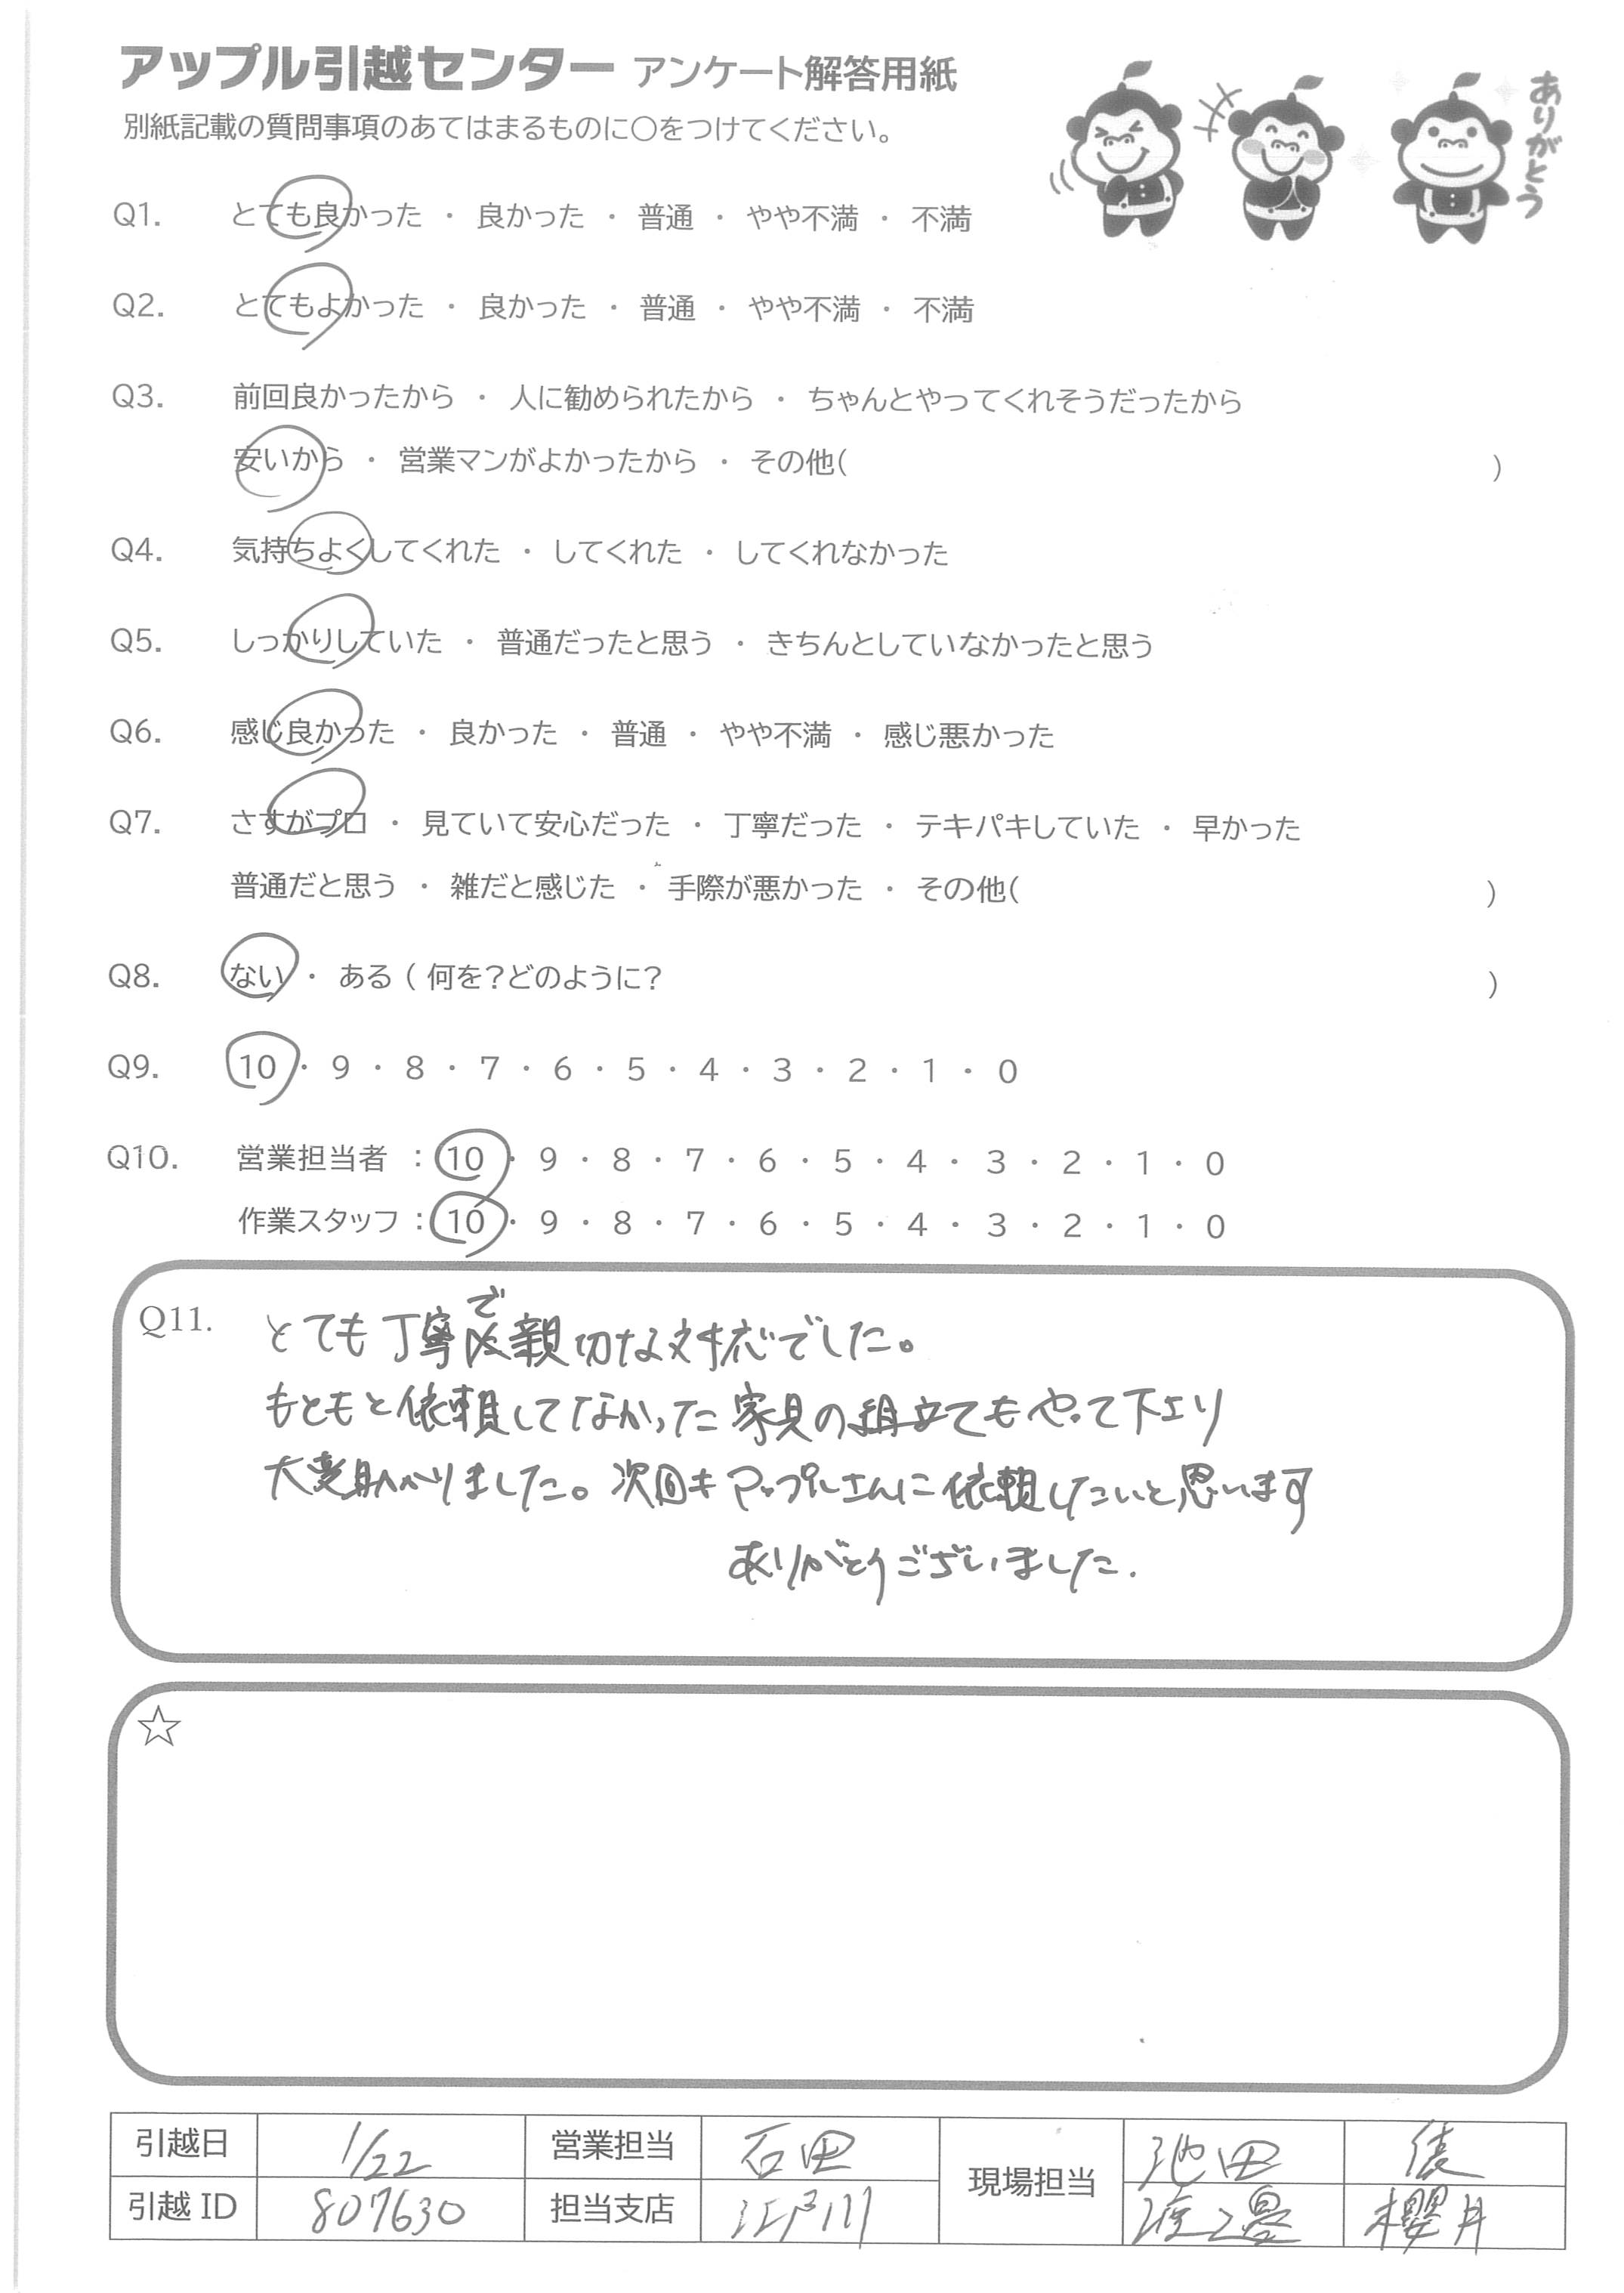 アップル引越センター アンケート解答用紙
ありがとう
別紙記載の質問事項のあてはまるものに○をつけてください。
Q1. とても良かった ・ 良かった ・ 普通 ・ やや不満 ・ 不満
Q2. とてもよかった ・ 良かった ・ 普通 ・ やや不満 ・ 不満
Q3. 前回良かったから ・ 人に勧められたから ・ ちゃんとやってくれそうだったから
安いから ・ 営業マンがよかったから ・ その他( )
Q4. 気持ちよくしてくれた ・ してくれた ・ してくれなかった
Q5. しっかりしていた ・ 普通だったと思う ・ きちんとしていなかったと思う
Q6. 感じ良かった ・ 良かった ・ 普通 ・ やや不満 ・ 感じ悪かった
Q7. さすがプロ ・ 見ていて安心だった ・ 丁寧だった ・ テキパキしていた ・ 早かった
普通だと思う ・ 雑だと感じた ・ 手際が悪かった ・ その他( )
Q8. ない ・ ある ( 何を?どのように? )
Q9. 10 ・ 9 ・ 8 ・ 7 ・ 6 ・ 5 ・ 4 ・ 3 ・ 2 ・ 1 ・ 0
Q10. 営業担当者 : 10 ・ 9 ・ 8 ・ 7 ・ 6 ・ 5 ・ 4 ・ 3 ・ 2 ・ 1 ・ 0
作業スタッフ : 10 ・ 9 ・ 8 ・ 7 ・ 6 ・ 5 ・ 4 ・ 3 ・ 2 ・ 1 ・ 0
Q11. とても丁寧で親切な対応でした。
もともと依頼してなかった家具の組立てもやって下さり
大変助かりました。次回もアップルさんに依頼したいと思います
ありがとうございました.
☆
引越日 1/22 営業担当 石田 現場担当 池田 俵
引越ID 807630 担当支店 江戸川 渡邊 櫻井